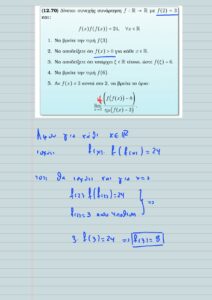 (12.70) Δίνεται συνεχής συνάρτηση f : ℝ → ℝ με f(2) = 3
και:
f(x)f(f(x)) = 24, ∀x ∈ ℝ
1. Να βρείτε την τιμή f(3)
2. Να αποδείξετε ότι f(x) > 0 για κάθε x ∈ ℝ.
3. Να αποδείξετε ότι υπάρχει ξ ∈ ℝ τέτοιο, ώστε f(ξ) = 6.
4. Να βρείτε την τιμή f(6).
5. Αν f(x) ≠ 3 κοντά στο 2, να βρείτε το όριο:
lim x→2 (f(f(x)) - 8) / (xf(x) - 3x)
Αφού για κάθε x ∈ ℝ
ισχύει f(x) · f(f(x)) = 24
τότε θα ισχύει και για x=2
f(2) f(f(2)) = 24
f(2) = 3 από υπόθεση } ⇒
3 · f(3) = 24 ⇒ f(3) = 8